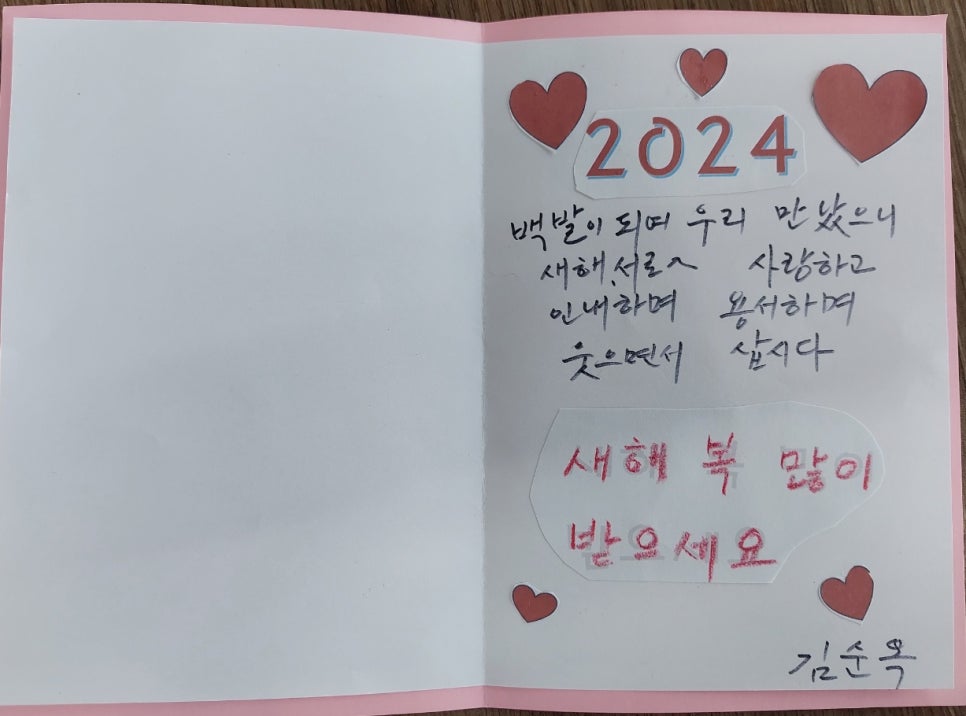 2024
백발이 되여 우리 만났으니
새해, 서로 사랑하고
인내하며 용서하며
웃으면서 삽시다
새해 복 많이
받으세요
김순옥